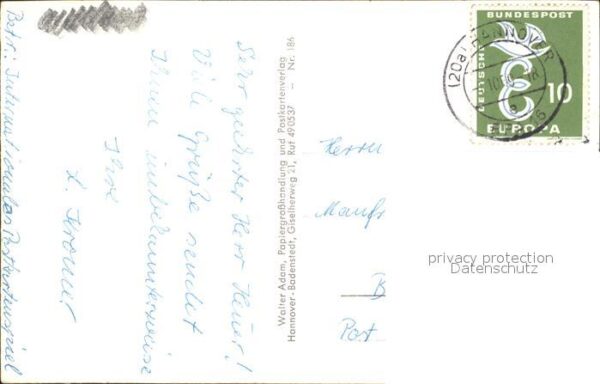 Betr: Internationales Postkartenspiel
Sehr geehrter Herr Heuer!
Viele Grüße sendet
Ihnen unbekannterweise
Ihre
L. Kroner
Walter Adam, Papiergroßhandlung und Postkartenverlag
Hannover-Badenstedt, Giselherweg 21, Ruf 490537 — Nr. 186
DEUTSCHE
BUNDESPOST
10
EUROPA
(20a) HANNOVER
Herrn
Manfr
B
Post
privacy protection
Datenschutz